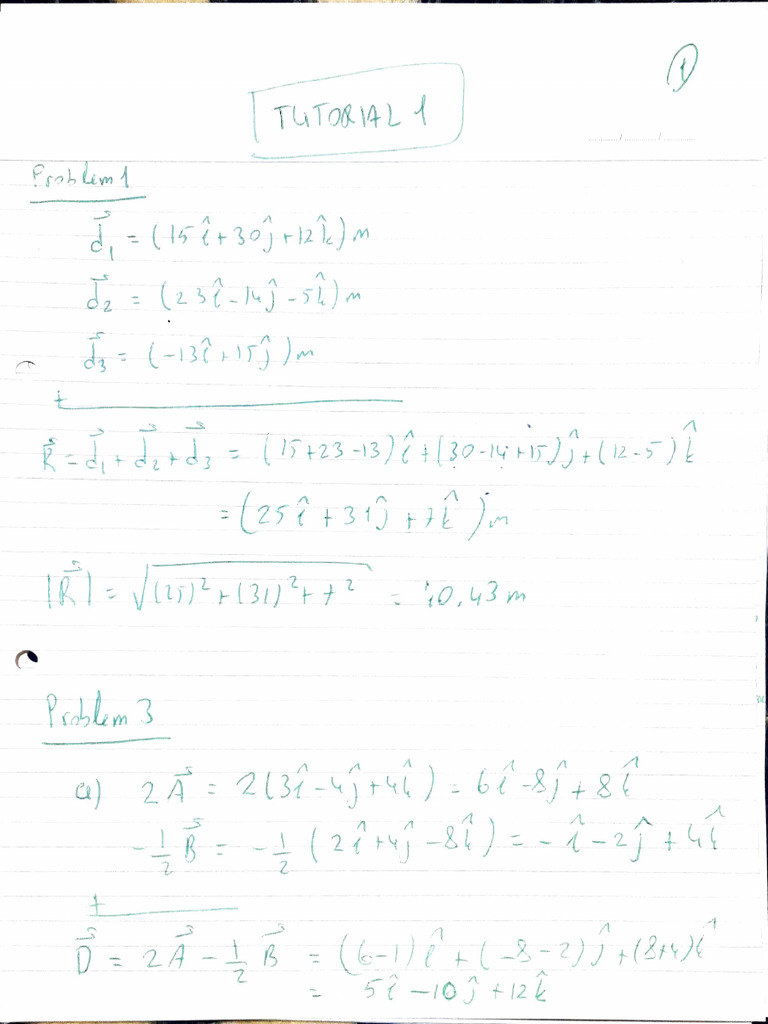 1
TUTORIAL 1
Problem 1
d⃗₁ = (15î + 30ĵ + 12k̂) m
d⃗₂ = (23î - 14ĵ - 5k̂) m
d⃗₃ = (-13î + 15ĵ) m
+
R⃗ = d⃗₁ + d⃗₂ + d⃗₃ = (15+23-13)î + (30-14+15)ĵ + (12-5)k̂
= (25î + 31ĵ + 7k̂) m
|R⃗| = √((25)² + (31)² + 7²) = 40.43 m
Problem 3
a) 2A⃗ = 2(3î - 4ĵ + 4k̂) = 6î - 8ĵ + 8k̂
-1/2 B⃗ = -1/2 (2î + 4ĵ - 8k̂) = -î - 2ĵ + 4k̂
+
D⃗ = 2A⃗ - 1/2 B⃗ = (6-1)î + (-8-2)ĵ + (8+4)k̂
= 5î - 10ĵ + 12k̂